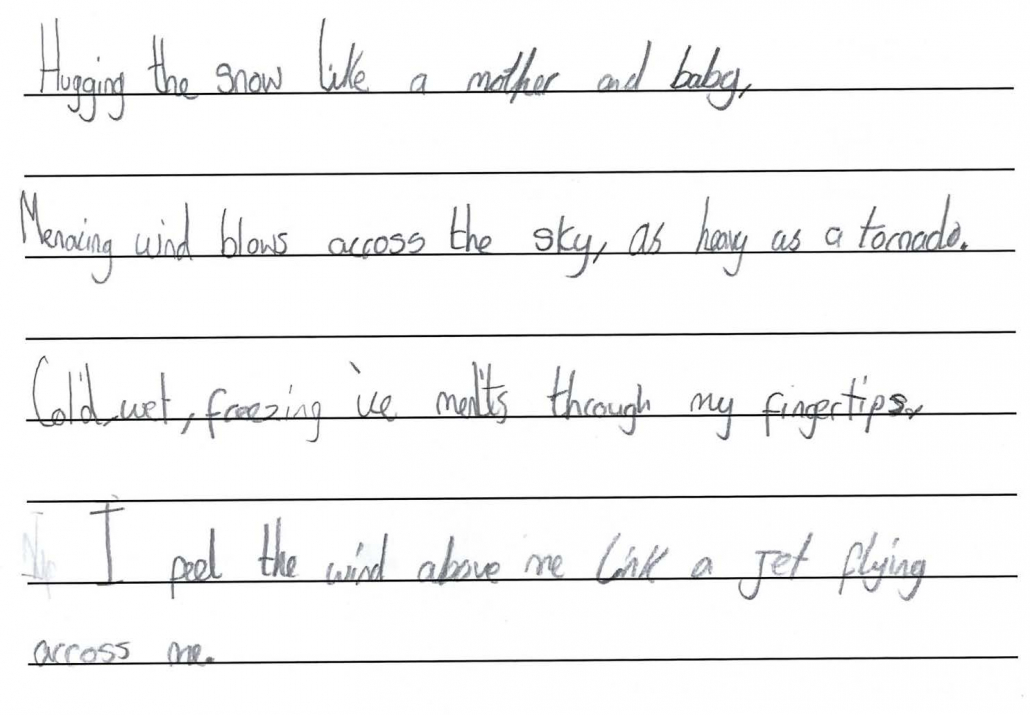 Hugging the snow like a mother and baby,
Menacing wind blows accross the sky, as heavy as a tornado.
Cold, wet, freezing ice melts through my fingertips,
I peel the wind above me link a Jet flying
accross me.